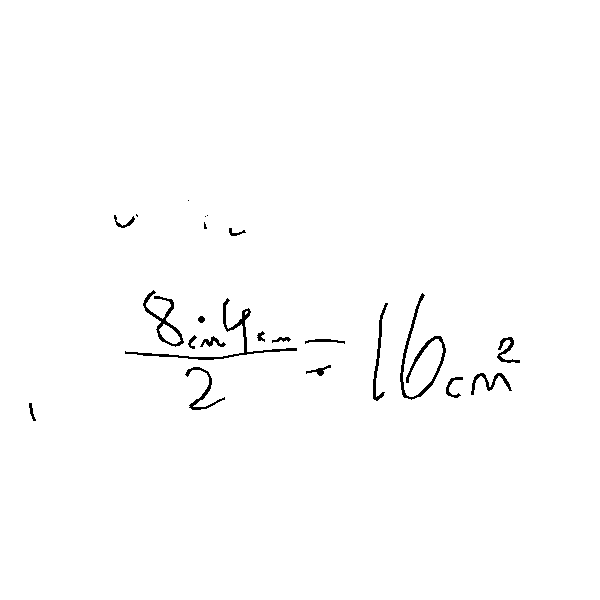 8cm·4cm/2 = 16cm²